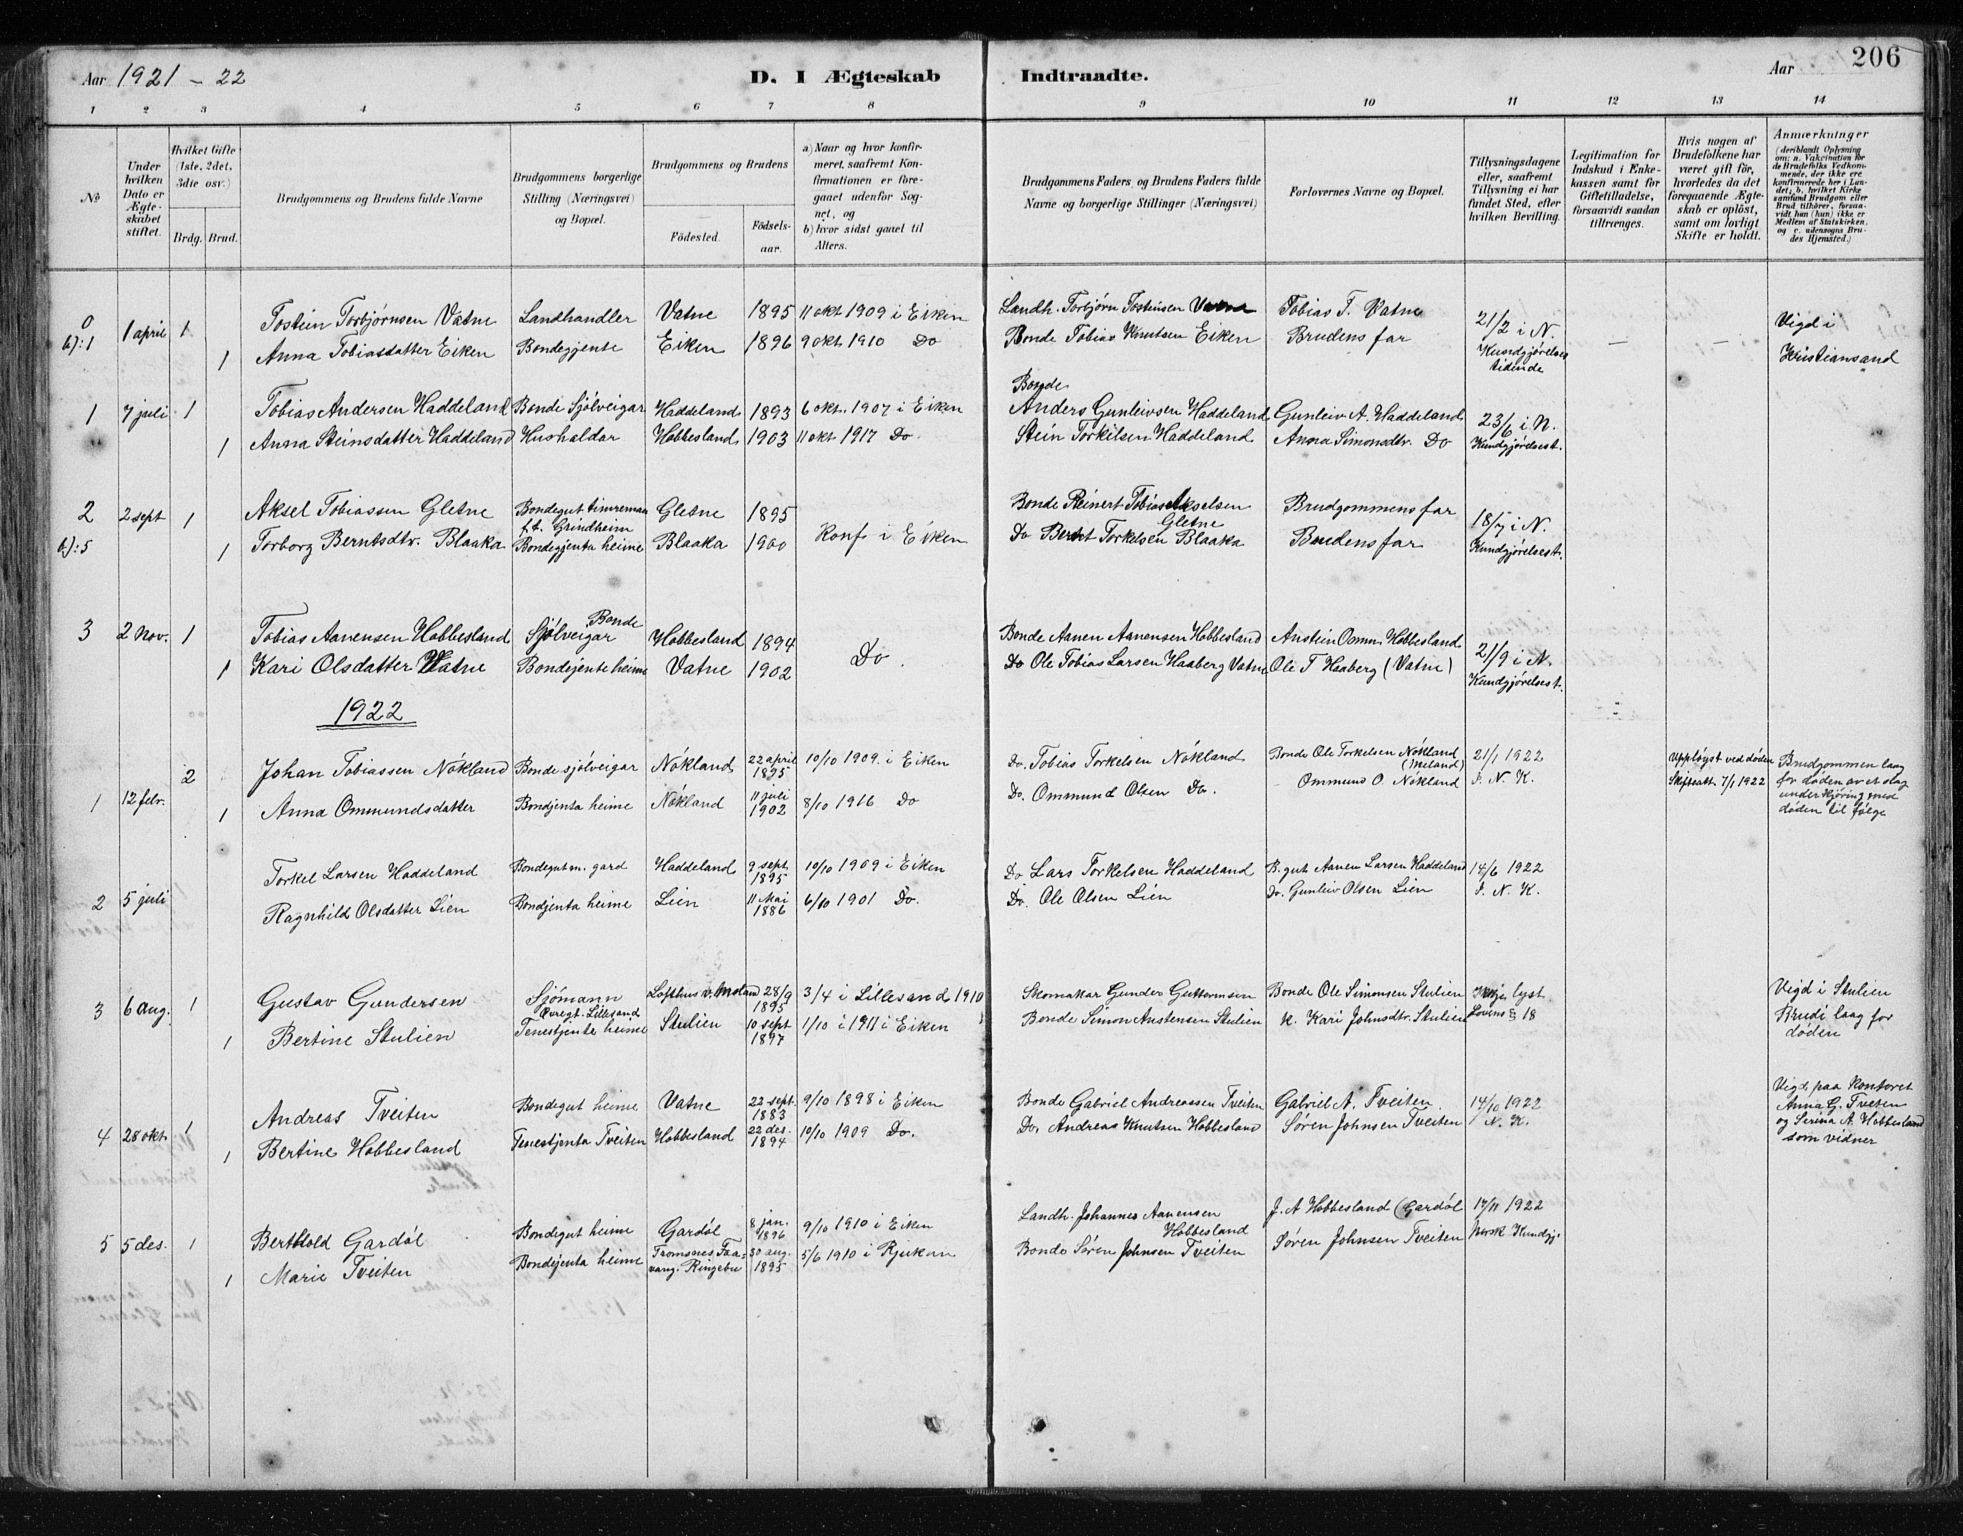 Aar 1921 - 22 D. I Ægteskab Indtraadte. Aar 206
1 2 3 4 5 6 7 8 9 10 11 12 13 14
No
Under hvilken Dato er Ægteskabet stiftet.
Hvilket Gifte (1ste, 2det, 3die osv.)
Brdg. Brud.
Brudgommens og Brudens fulde Navne
Brudgommens borgerlige Stilling (Næringsvei) og Bopæl.
Brudgommens og Brudens
Födested. Födsels-aar.
a) Naar og hvor konfirmeret, saafremt Konfirmationen er foregaaet udenfor Sognet, og
b) hvor sidst gaaet til Alters.
Brudgommens Faders og Brudens Faders fulde Navne og borgerlige Stillinger (Næringsvei)
Forlovernes Navne og Bopæl.
Tillysningsdagene eller, saafremt Tillysning ei har fundet Sted, efter hvilken Bevilling.
Legitimation for Indskud i Enkekassen samt for Giftetilladelse, forsaavidt saadan tiltrænges.
Hvis nogen af Brudefolkene har været gift för, hvorledes da det foregaaende Ægteskab er oplöst, samt om lovligt Skifte er holdt.
Anmærkninger (deriblandt Oplysning om: a. Vakcination for de Brudefolks Vedkommende, der ikke ere konfirmerede her i Landet; b. hvilket Kirkesamfund Brudgom eller Brud tilhörer, forsaavidt hun (han) ikke er Medlem af Statskirken, og c. udensogns Brudes Hjemsted.)
0 b):1 1 april 1 Tostein Torbjørnsen Vatne Landhandler Vatne 1895 11 okt 1909 i Eiken Landh. Torbjørn Tosteinsen Vatne Tobias T. Vatne 21/2 i N. Kundgjørelses tidende — Vigd i Kristiansand
1 Anna Tobiasdatter Eiken Bondegjente Eiken 1896 9 okt 1910 Do Bonde Tobias Knutsen Eiken Brudens far
1 7 juli 1 Tobias Andersen Haddeland Bonde Sjølveigar Haddeland 1893 6 okt. 1907 i Eiken Bonde Anders Gunleivsen Haddeland Gunleiv A. Haddeland 23/6 i N. Kundgjørelsest.
1 Anna Steinsdatter Haddeland Hushaldar Hobbesland 1903 11 okt 1917 Do. Stein Torkilsen Haddeland Anna Simonsdtr. Do
2 b):5 2 sept 1 Aksel Tobiassen Gletne Bondegut timreman f.t. Grindheim Gletne 1895 Konf i Eiken Bonde Reinert Tobias Akselsen Gletne Brudgommens far 18/7 i N. Kundgjørelsest.
1 Torborg Berntsdtr. Blaaka Bondegjenta heime Blaaka 1900 Do Bernt Torkelsen Blaaka Brudens far
3 2 Nov. 1 Tobias Aanensen Hobbesland Sjølveigar Bonde Hobbesland 1894 Do. Bonde Aanen Aanensen Hobbesland Anstein Omm. Hobbesland 21/9 i N. Kundgjørelsest.
1 Kari Olsdatter Vatne Bondejente heime Vatne 1902 Do Ole Tobias Larsen Haaberg Vatne Ole T Haaberg (Vatne)
1922
1 12 febr. 2 Johan Tobiassen Nökland Bonde sjølveigar Nökland 22 april 1895 10/10 1909 i Eiken Do. Tobias Torkelsen Nökland Bonde Ole Torkelsen Nökland (Meland) 21/1 1922 I. N. K. Uppløyst ved døden Skifteatt. 7/1 1922 Brudgommen laag for døden av et slag under kjøring med døden til følge
1 Anna Ommundsdatter Bondjenta heime Nökland 11 juli 1902 8/10 1916 Do Do. Ommund Olsen Do. Ommund O. Nökland
2 5 juli Torkel Larsen Haddeland Bondegut m. gard Haddeland 9 sept 1895 10/10 1909 i Eiken Do Lars Torkelsen Haddeland B. gut Aanen Larsen Haddeland 14/6 1922 I. N. K.
Ragnhild Olsdatter Lien Bondjenta heime Lien 11 Mai 1886 6/10 1901 Do. Do. Ole Olsen Lien Do. Gunleiv Olsen Lien
3 6 aug. 1 Gustav Gundersen Sjömann Lillesand Lofthus v. Moland 28/9 1895 3/4 i Lillesand 1910 Skomakar Gunder Guttormsen Bonde Ole Simonsen Stulien lyst. Lovens § 18 Vigd i Stulien Brudi laag for døden
1 Bertine Stulien Tenestjente heime Stulien 10 sept 1897 1/10 i 1911 i Eiken Bonde Simon Anstensen Stulien K. Kari Johnsdtr. Stulien
4 28 okt. 1 Andreas Tveiten Bondegut heime Vatne 22 sept. 1883 9/10 1898 i Eiken Bonde Gabriel Andreassen Tveiten Gabriel A. Tveiten 14/10 1922 I N. K. Vigd paa Kontoret Anna G. Tveten og Serina A. Hobbesland som vidner
1 Bertine Hobbesland Tenestjenta Tveiten Hobbesland 22 des. 1894 10/10 1909 Do. Do. Andreas Knutsen Hobbesland Søren Johnsen Tveiten
5 5 des. 1 Berthold Gardøl Bondegut heime Gardøl 8 jan. 1896 9/10 1910 i Eiken Landh. Johannes Aanensen Hobbesland J. A Hobbesland (Gardøl 17/11 1922 Norsk Kundgj.
1 Marie Tveiten Bondejenta heime Tromsnes Faavang. Ringebu 30 aug. 1895 5/6 1910 i Rjukan Bonde Søren Johnsen Tveiten Søren Johnsen Tveiten